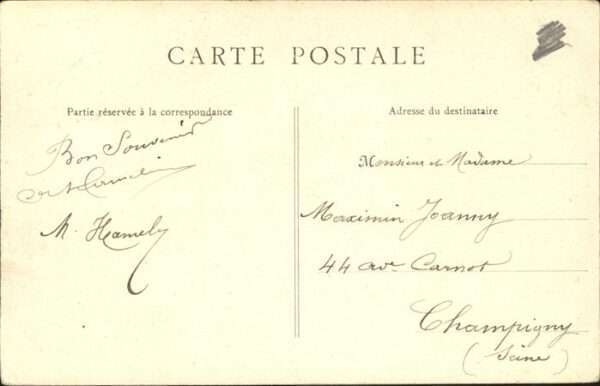 CARTE POSTALE
Partie réservée à la correspondance
Bon Souvenir
M. Hamely
Adresse du destinataire
Monsieur et Madame
Maximin Joanny
44 ave Carnot
Champigny
(Seine)